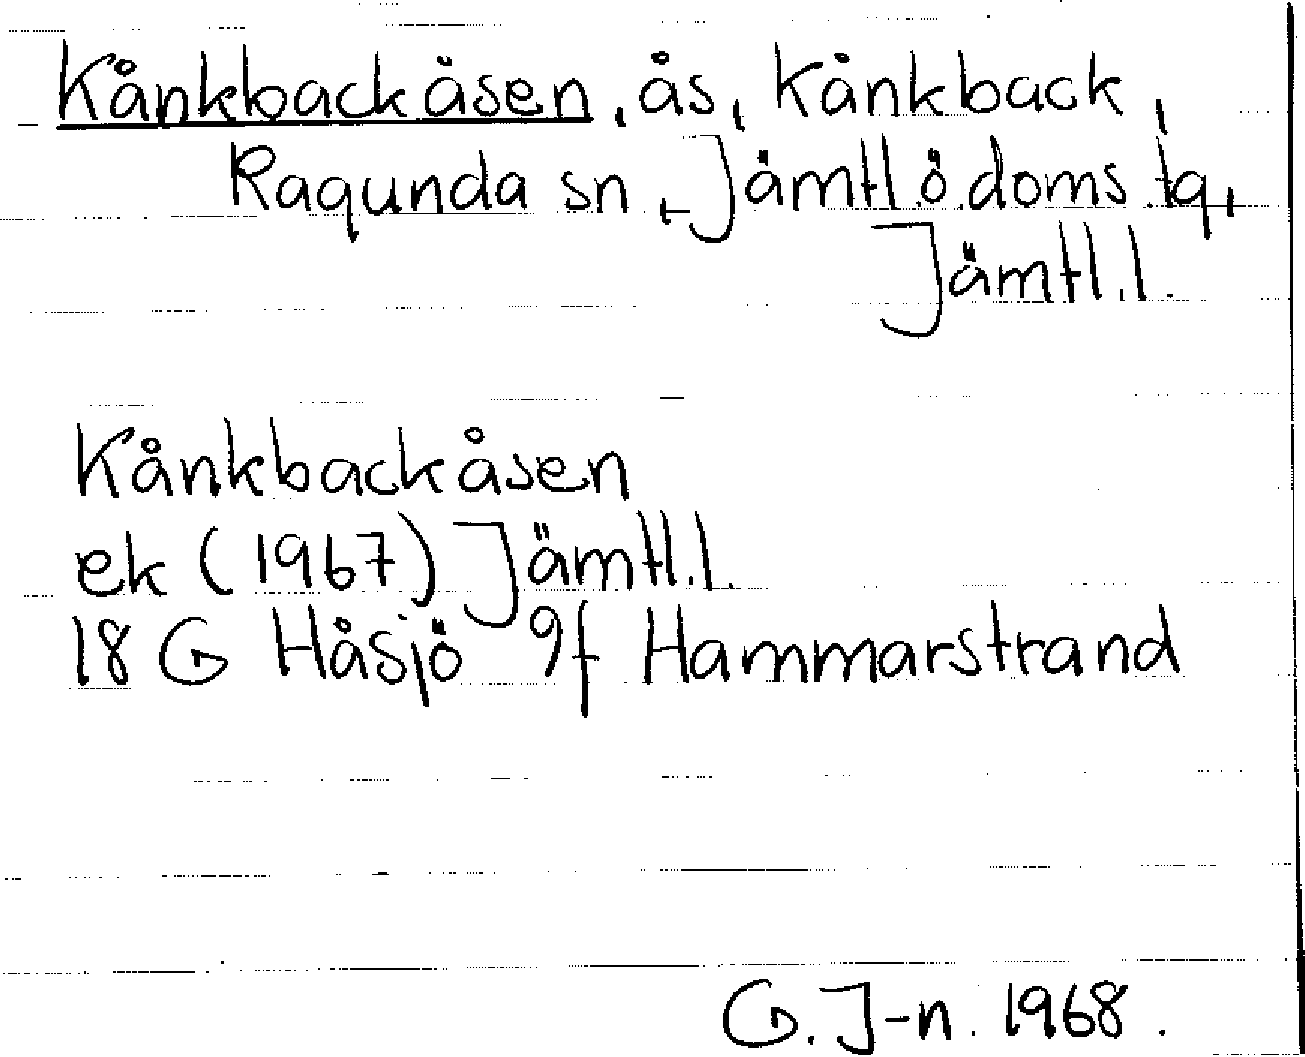 Kånkbackåsen, ås, Kånkback,
Ragunda sn, Jämtl.ö.doms.tg,
Jämtl.l.
Kånkbackåsen
ek (1967) Jämtl.l.
18 G Håsjö 9f Hammarstrand
G. J-n. 1968.